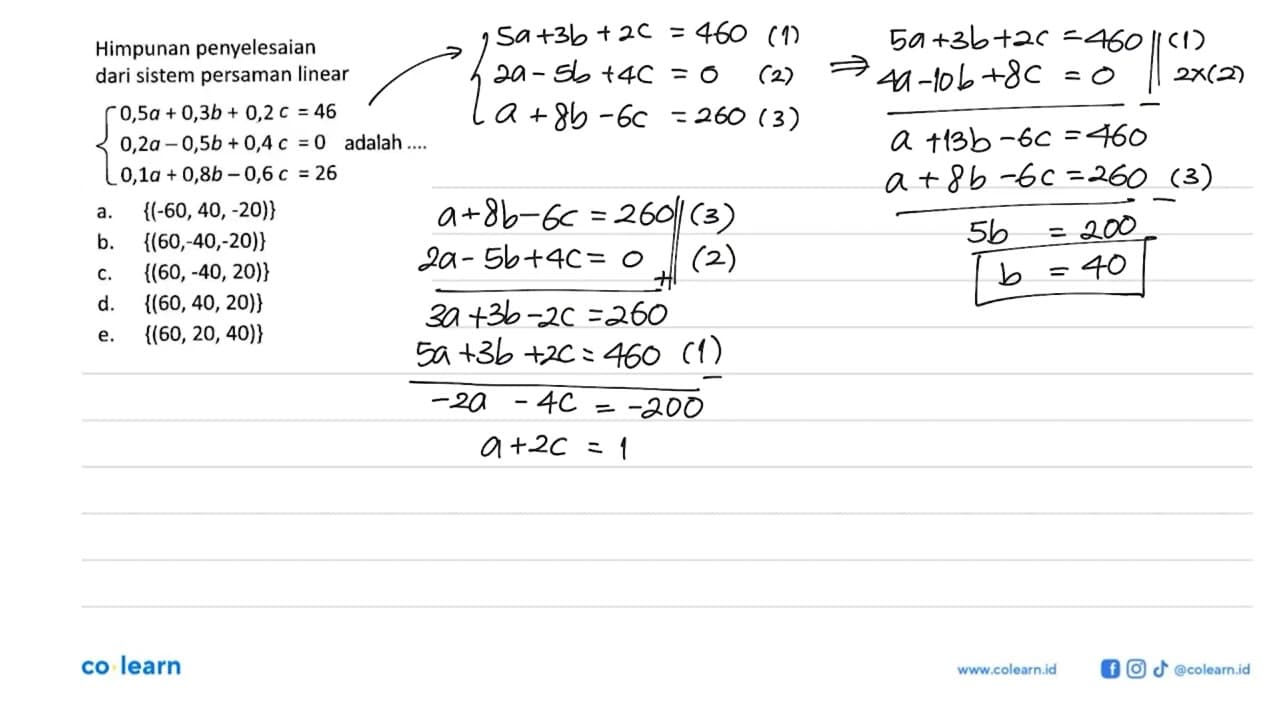 Himpunan penyelesaian
dari sistem persaman linear
0,5a + 0,3b + 0,2 c = 46
0,2a – 0,5b + 0,4 c = 0 adalah ....
0,1a + 0,8b – 0,6 c = 26
a. {(-60, 40, -20)}
b. {(60,-40,-20)}
c. {(60, -40, 20)}
d. {(60, 40, 20)}
e. {(60, 20, 40)}
5a+3b+2c = 460 (1)
2a-5b+4c = 0 (2)
a+8b-6c = 260 (3)
⇒ 5a+3b+2c = 460 (1)
4a-10b+8c = 0 2x(2)
−
a+13b-6c = 460
a+8b-6c = 260 (3)
−
5b = 200
b = 40
a+8b-6c = 260 (3)
2a-5b+4c = 0 (2)
+
3a+3b-2c = 260
5a+3b+2c = 460 (1)
−
-2a -4c = -200
a+2c = 1
co learn
www.colearn.id
@colearn.id